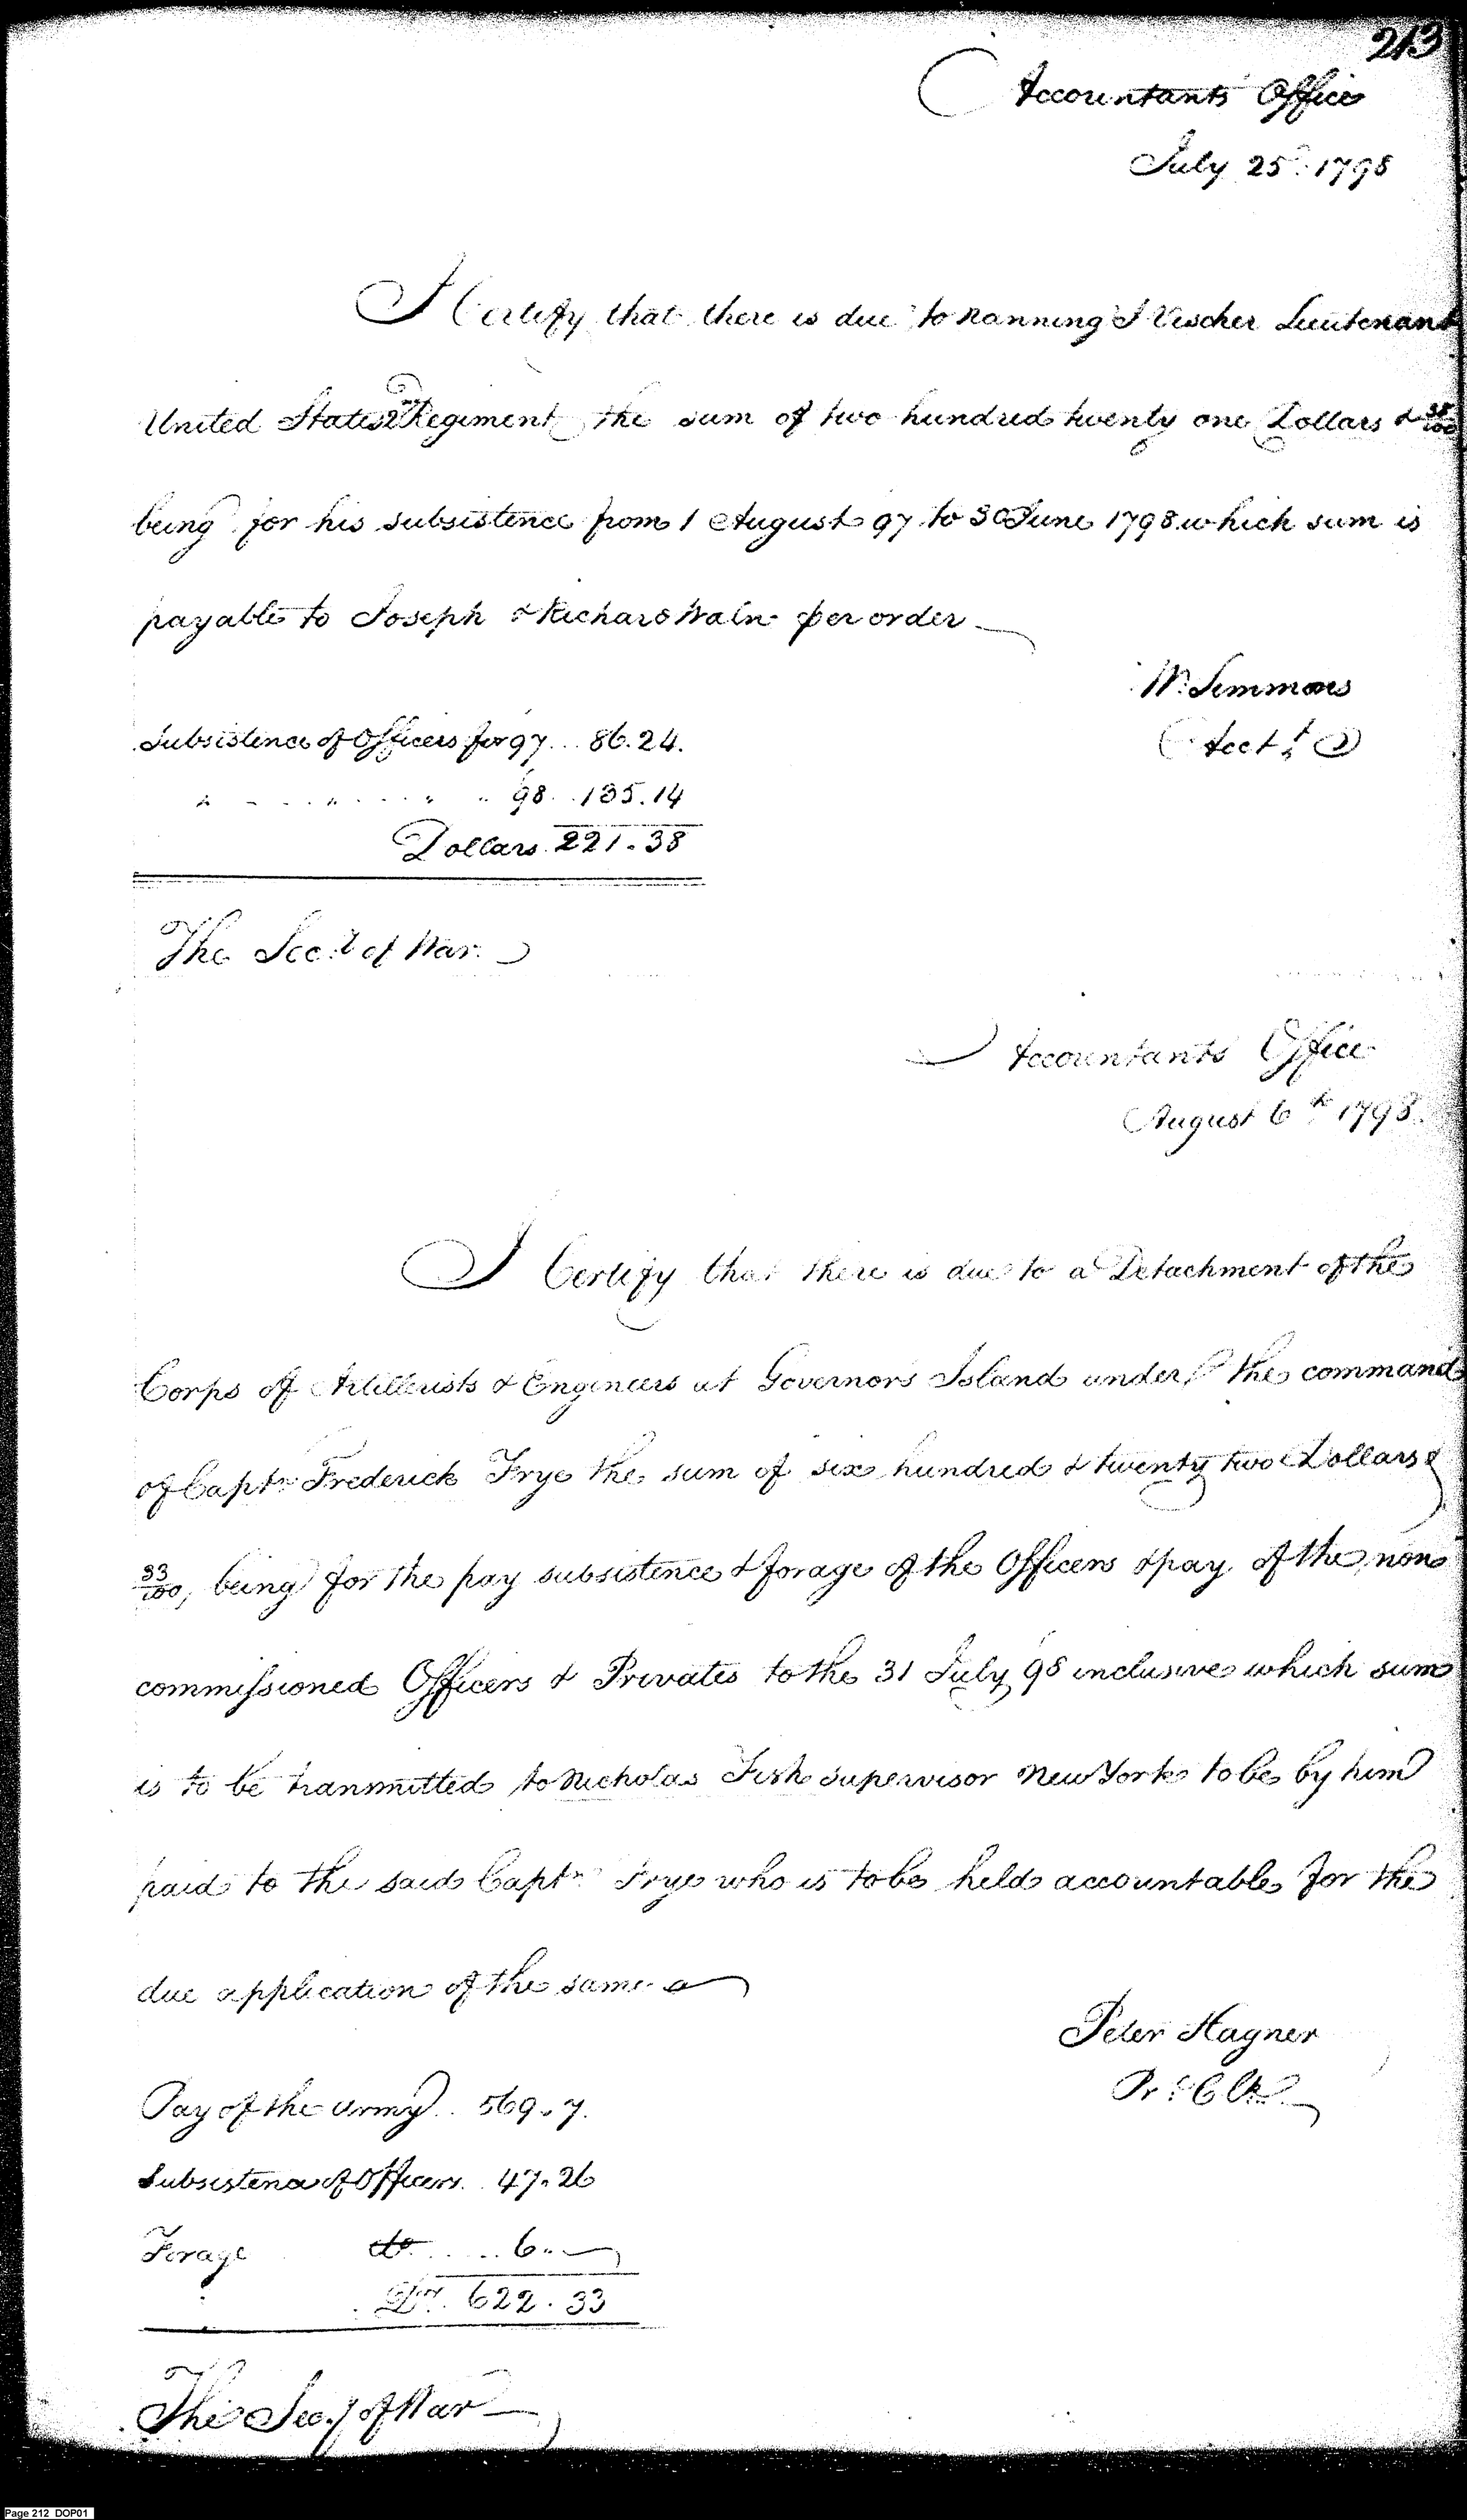 213
Accountants Office
July 25th 1798
I Certify that there is due to Nanning I Vischer Lieutenant
United States 2nd Regiment the sum of two hundred twenty one Dollars & 38/100
being for his subsistence from 1 August 97 to 30 June 1798 which sum is
payable to Joseph & Richard Waln per order
Wm Simmons
Acct
Subsistence of Officers for 97 ... 86.24.
" " " " 98 .. 135.14
Dollars 221.38
The Secy of War.
Accountants Office
August 6th 1798.
I Certify that there is due to a Detachment of the
Corps of Artillerists & Engineers at Governors Island under the command
of Captn Frederick Frye the sum of six hundred & twenty two Dollars &
33/100, being for the pay subsistence & forage of the Officers & pay of the non
commissioned Officers & Privates to the 31 July 98 inclusive which sum
is to be tranmitted to Nicholas Fish Supervisor New York to be by him
paid to the said Captn Frye who is to be held accountable for the
due application of the same
Peter Hagner
Pr: Clk
Pay of the army .. 569.7.
Subsistence of Officers .. 47.26
Forage do ..... 6..
Drs. 622.33
The Secy of War
Page 212 DOP01